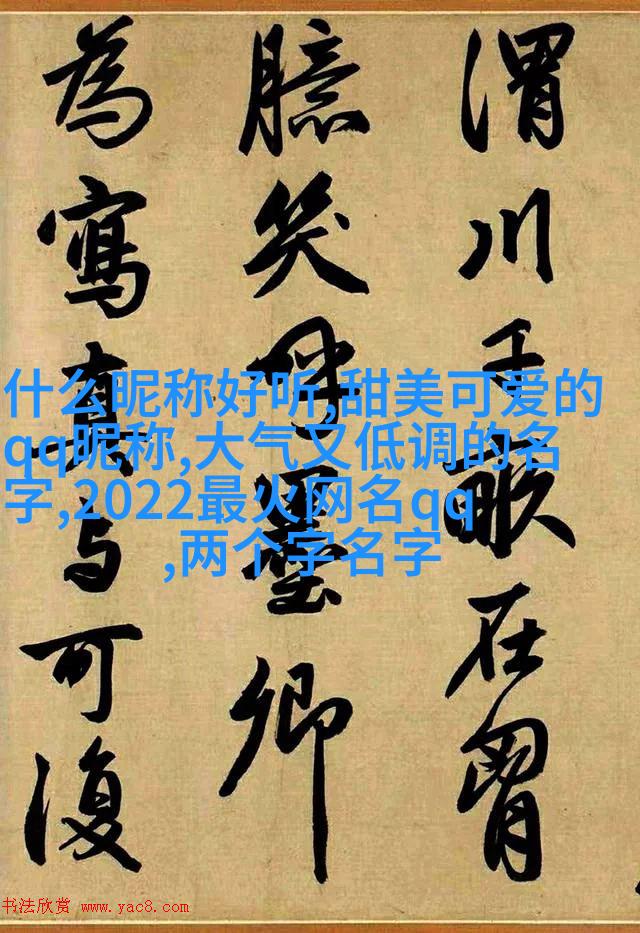 渭川千畝在胷
臆笑呼墨卿
為寫真与可復
什么昵称好听,甜美可爱的
qq昵称,大气又低调的名
字,2022最火网名qq
,两个字名字
书法欣赏 www.yac8.com